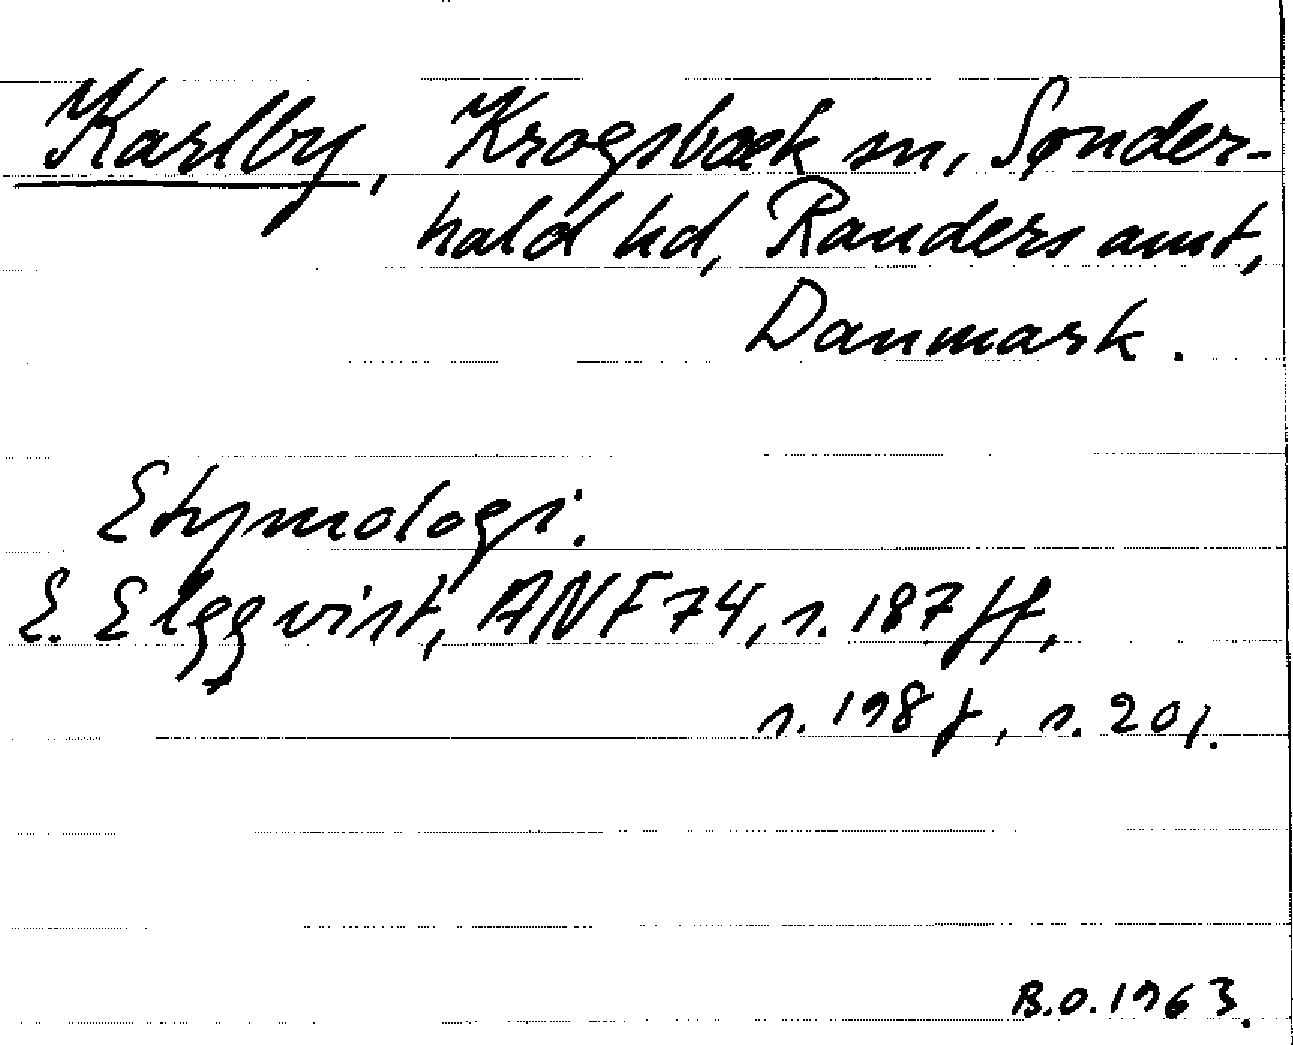 Karlby, Krogsbæk sn, Sønder-
hald hd, Randers amt,
Danmark.
Etymologi.
E. Elgqvist, ANF 74, s. 187 ff.
s. 198 f, s. 201.
B.O. 1963.